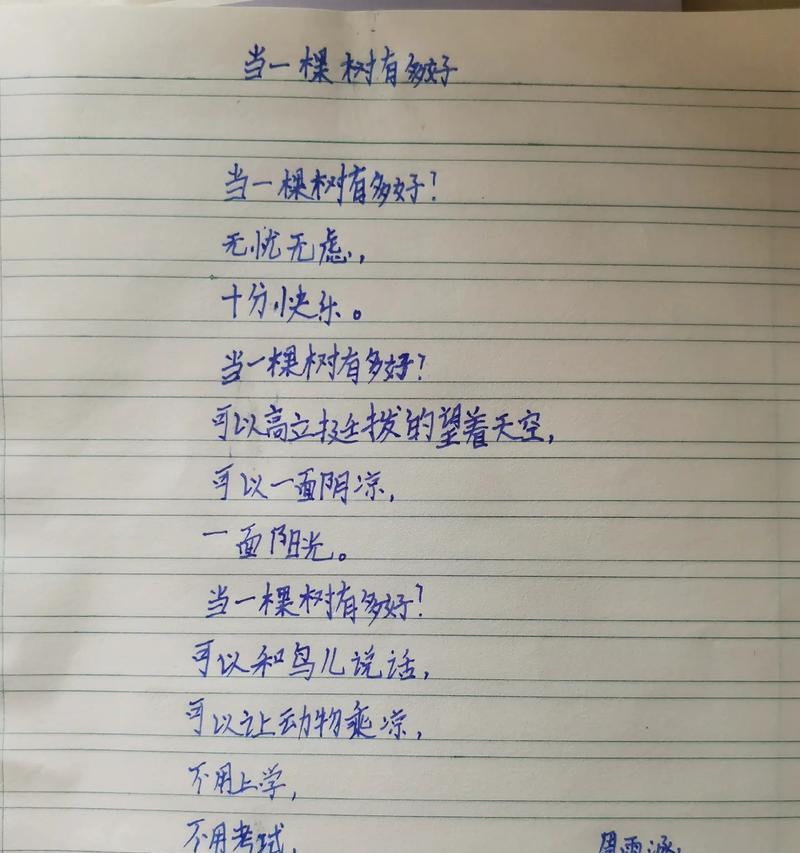 当一棵树有多好
当一棵树有多好？
无忧无虑，
十分快乐。
当一棵树有多好？
可以高立挺拔的望着天空，
可以一面阴凉，
一面阳光。
当一棵树有多好？
可以和鸟儿说话，
可以让动物乘凉，
不用上学，
不用考试，
周雨涵